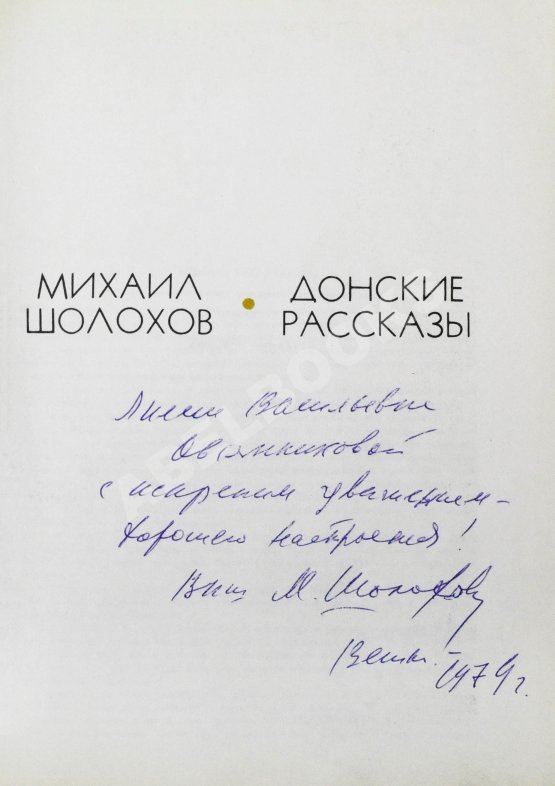 МИХАИЛ
ШОЛОХОВ
ДОНСКИЕ
РАССКАЗЫ
Васильевне
Овсянниковой
с искреним уважением –
хорошего настроения!
Ваш М. Шолохов
Вешк. – 1979 г.